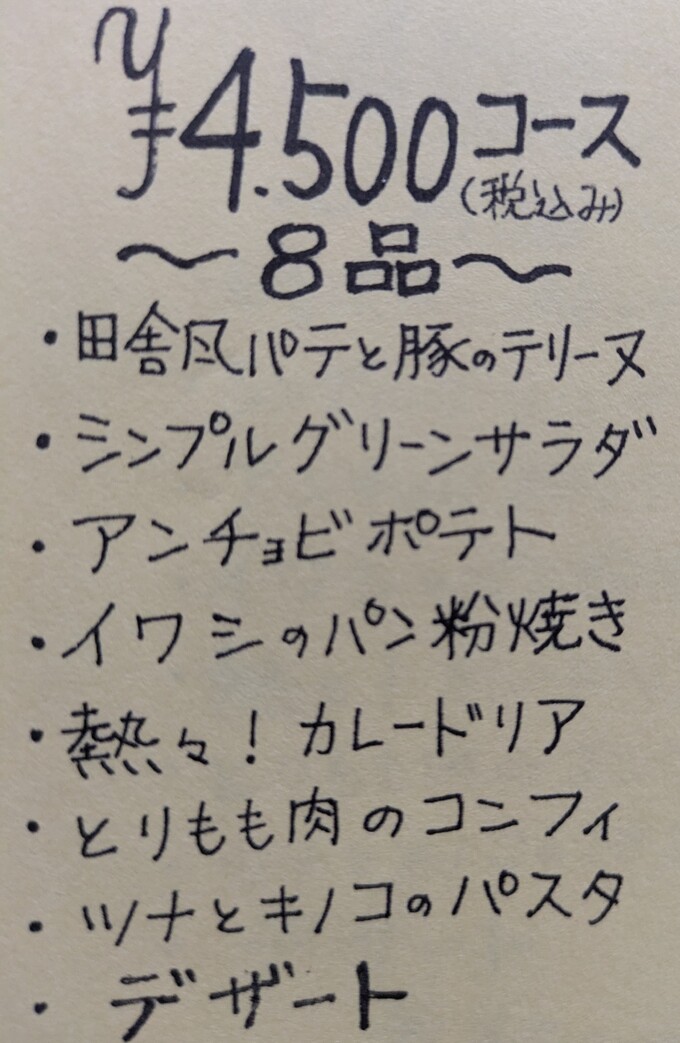 ¥4.500コース
(税込み)
〜8品〜
・田舎风パテと豚のテリーヌ
・シンプルグリーンサラダ
・アンチョビポテト
・イワシのパン粉焼き
・熱々！カレードリア
・とりもも肉のコンフィ
・ツナとキノコのパスタ
・デザート